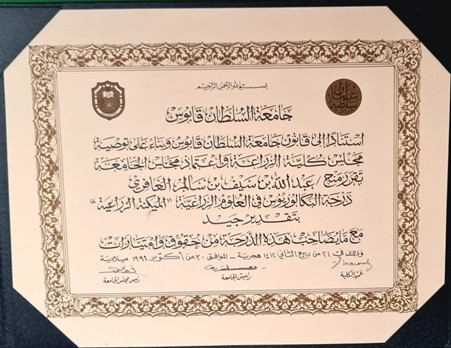 بسم الله الرحمن الرحيم
جامعة السلطان قابوس
استنادا إلى قانون جامعة السلطان قابوس وبناء على توصية
مجلس كلية الزراعة واعتماد مجلس الجامعة
تقرر منح / عبد الله بن سيف بن سالم الغافري
درجة البكالوريوس في العلوم الزراعية "الميكنة الزراعية"
بتقدير جيد
مع ما يصاحب هذه الدرجة من حقوق وامتيازات
وذلك في ٢١ من ربيع الثاني ١٤١٢ هجرية - الموافق ٣٠ من أكتوبر ١٩٩١ ميلادية
عميد الكلية
رئيس الجامعة
رئيس مجلس الجامعة